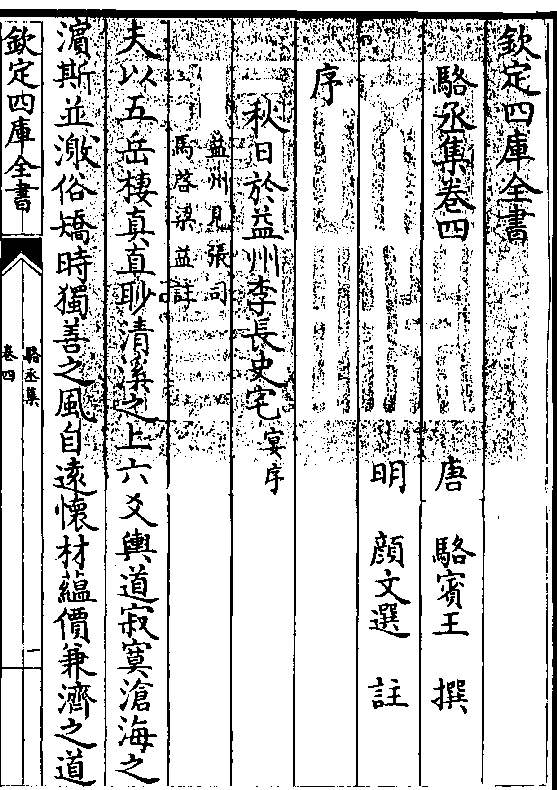 欽定四庫全書
駱丞集卷四
唐 駱賓王 撰
明 顔文選 註
序
秋日於益州李長史宅宴序
益州見張司
馬啓梁益註
夫以五岳棲真直聊清溪之上六爻輿道寂寞滄海之
濵斯並激俗矯時獨善之風自逺懷材藴價兼濟之道
欽定四庫全書
駱丞集
卷四
一